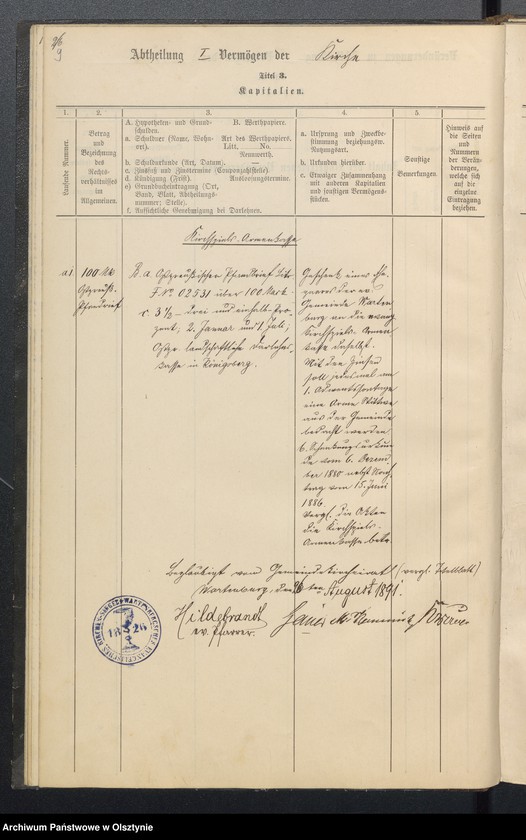 Abtheilung I Vermögen der Kirche
Titel 3.
Kapitalien.
1.
2.
3.
4.
5.
Laufende Nummer.
Betrag
und
Bezeichnung
des
Rechts-
verhältnisses
im
Allgemeinen.
A. Hypotheken- und Grund-
schulden.
a. Schuldner (Name, Wohn-
ort).
b. Schuldurkunde (Art, Datum).
c. Zinsfuß und Zinstermine (Couponzahlstelle).
d. Kündigung (Frist).
e. Grundbucheintragung (Ort,
Band, Blatt, Abtheilungs-
nummer; Stelle).
f. Aufsichtliche Genehmigung bei Darlehnen.
B. Werthpapiere.
Art des Werthpapiers.
Litt. No.
Nennwerth.
—
Ausloosungstermine.
a. Ursprung und Zweckbe-
stimmung beziehungsw.
Nutzungsart.
b. Urkunden hierüber.
c. Etwaiger Zusammenhang
mit anderen Kapitalien
und sonstigen Vermögens-
stücken.
Sonstige
Bemerkungen.
Hinweis auf
die Seiten
und
Nummern
der
Verän-
derungen,
welche sich
auf die
einzelne
Eintragung
beziehen.
Kirchspiels-Armenkasse
a1
100 Mk
Ostpreuß.
Pfandbrief
B. a Ostpreußischer Pfandbrief Litt.
F. No 02531 über 100 Mark
c. 3½ – drei und einhalb – Pro-
zent, 2. Januar und 1. Juli;
Ostpr. landschaftliche Darlehns-
kasse in Königsberg.
Geschenk eines
der ev.
Gemeinde Warten
burg an die evang.
Kirchspiels-Armen
kasse daselbst.
Mit den Zinsen
soll jedesmal am
1. Adventssontage
eine Arme Wittwe
aus der Gemeinde
bedacht werden
b. Schenkungsurkun
de vom 6. Dezem
ber 1880 nebst Nach
trag vom 15. Juni
1886.
Vergl. die Akten
die Kirchspiels-
Armenkasse betr.
Beglaubigt vom Gemeindekirchenrat (vergl. Titelblatt)
Wartenburg, den ten August 1891.
Hildebrandt
ev. Pfarrer.
1826
Archiwum Państwowe w Olsztynie